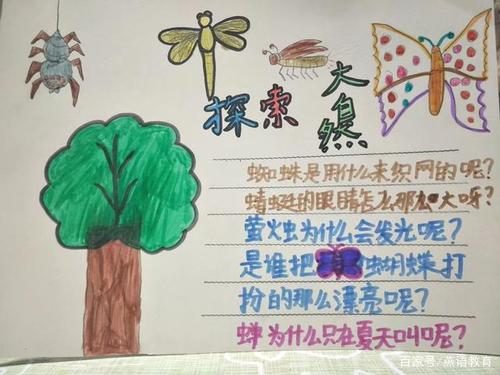 探索大自然
蜘蛛是用什么来织网的呢?
蜻蜓的眼睛怎么那加大呀?
萤火虫为什么会发光呢?
是谁把蝴蝶打
扮的那么漂亮呢?
蝉为什么只在夏天叫呢?
百家号/燕语教育